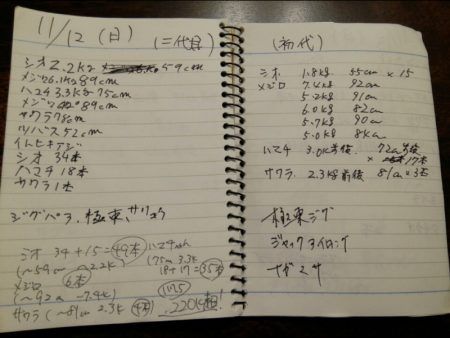 11/12 (日) (二代目)
シオ 2.2kg 59cm
メジロ 6.1kg 89cm
ハマチ 3.3kg 75cm
メジロ 89cm
サワラ 78cm
ツバス 52cm
シオ 34本
ハマチ 18本
サワラ 1本
ジグパラ、極東、
シオ 34+15=49本
(~59cm ~2.2k)
メジロ 6本
(~92cm ~7.4k)
サワラ (~81cm 2.3k 4本)
ハマチ
(75cm 3.3k
18+17=35本)
220k超!
(初代)
シオ 1.8kg 55cm ×15
メジロ 7.4kg 92cm
5.2kg 91cm
6.0kg 82cm
5.7kg 90cm
5.0kg
ハマチ 3.0k前後 72cm前後
× 17本
サワラ 2.3kg前後 81cm×3本
極東ジグ
ジャックアイロン